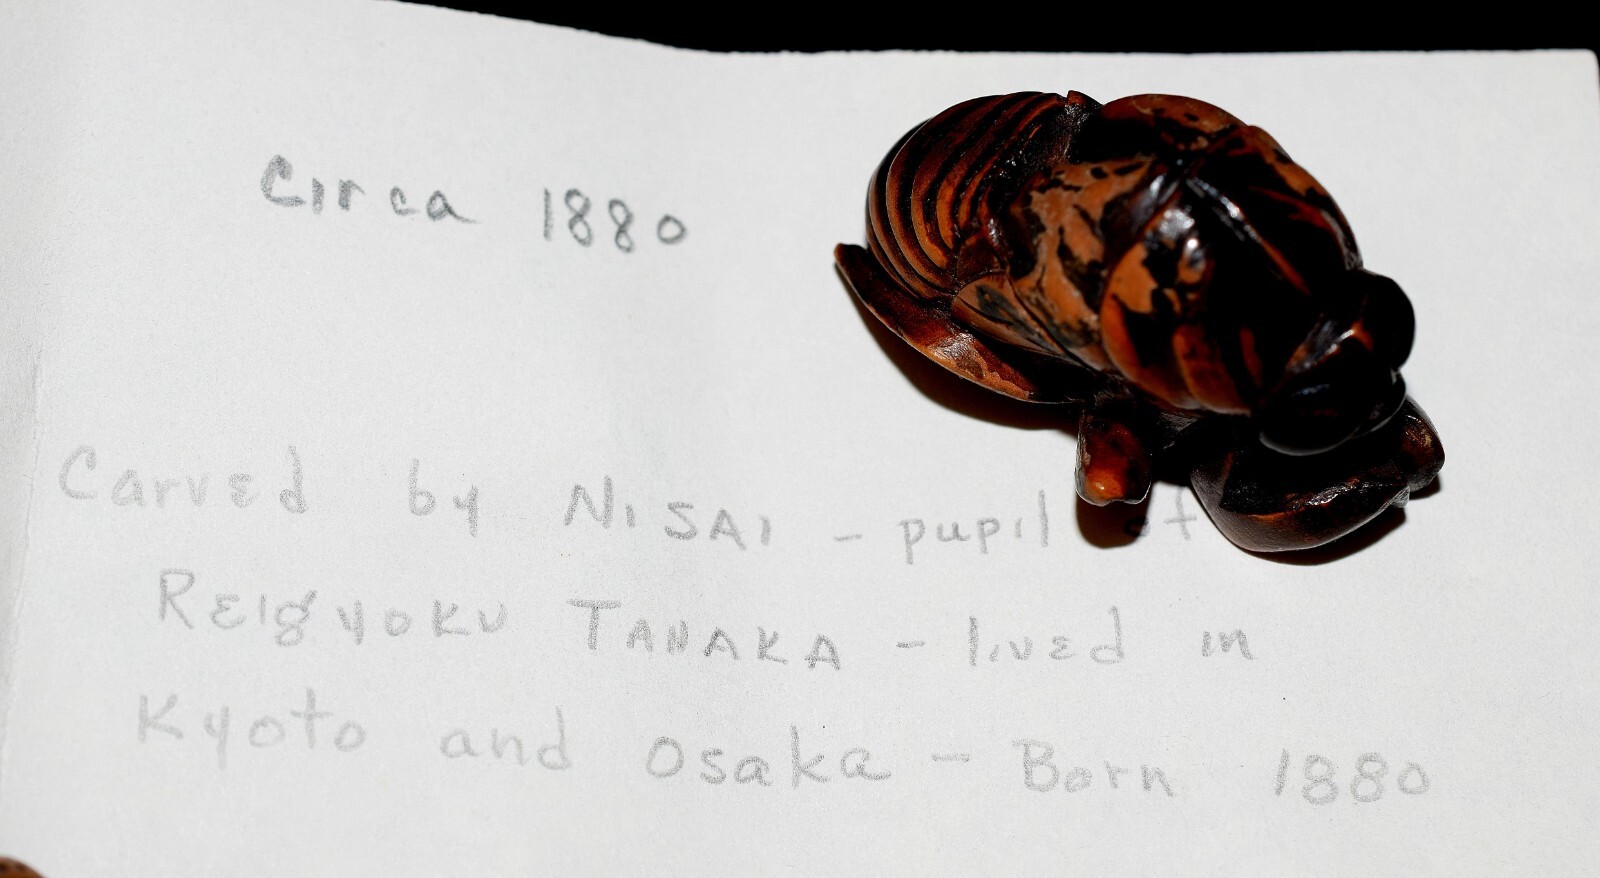 Circa 1880
Carved by NiSAi - pupil of
REigyoKU TANAKA - lived in
Kyoto and Osaka - Born 1880